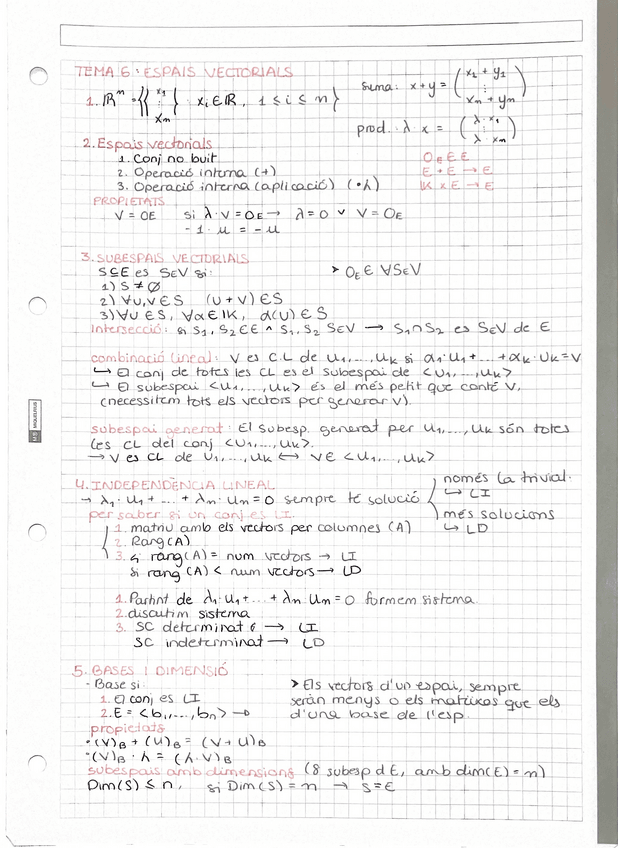 TEMA 6: ESPAIS VECTORIALS
1. ℝⁿ = {(x₁ ⋮ xₙ) xᵢ ∈ ℝ, 1 ≤ i ≤ n}
suma: x+y = (x₁ + y₁ ⋮ xₙ + yₙ)
prod. λ · x = (λ·x₁ ⋮ λ·xₙ)
2. Espais vectorials
1. Conj no buit O_E ∈ E
2. Operació interna (+) E + E → E
3. Operació interna (aplicació) (·λ) 𝕂 x E → E
PROPIETATS
V = OE si λ·V = O_E → λ = 0 ∨ V = O_E
-1 · u = -u
3. SUBESPAIS VECTORIALS
S⊆E es SEV si: ➤ O_E ∈ ∀SEV
1) S ≠ ∅
2) ∀u,v ∈ S (u + v) ∈ S
3) ∀u ∈ S, ∀α ∈ 𝕂, α(u) ∈ S
Intersecció: si S₁, S₂ ∈ E ^ S₁, S₂ SEV → S₁ ∩ S₂ es SEV de E
combinació lineal: V es C.L de u₁,...,uₖ si α₁·u₁ + ... + αₖ·uₖ = V
↪ El conj de totes les CL es el subespai de <u₁,...,uₖ>
↪ El subespai <u₁,...,uₖ> és el més petit que conté V.
(necessitem tots els vectors per generar V).
subespai generat: El subesp. generat per u₁,...,uₖ són totes
les CL del conj <u₁,...,uₖ>.
→ V es CL de u₁,...,uₖ ↔ V ∈ <u₁,...,uₖ>
4. INDEPENDÈNCIA LINEAL
→ λ₁·u₁ + ... + λₙ·uₙ = 0 sempre té solució
només la trivial.
↪ LI
més solucions
↪ LD
per saber si un conj es LI.
1. matriu amb els vectors per columnes (A)
2. Rang (A)
3. si rang (A) = num vectors → LI
si rang (A) < num vectors → LD
1. Partint de λ₁·u₁ + ... + λₙ·uₙ = 0 formem sistema.
2. discutim sistema
3. SC determinat → LI
SC indeterminat → LD
5. BASES I DIMENSIÓ
- Base si:
1. El conj es LI
2. E = <b₁,...,bₙ>
➤ Els vectors d'un espai, sempre
seràn menys o els mateixos que els
d'una base de l'esp.
propietats
·(V)_B + (U)_B = (V + U)_B
·(V)_B · λ = (λ·V)_B
subespais amb dimensions (S subesp d E, amb dim(E) = n)
Dim(S) ≤ n, si Dim(S) = n → S = E
MIQUELRIUS